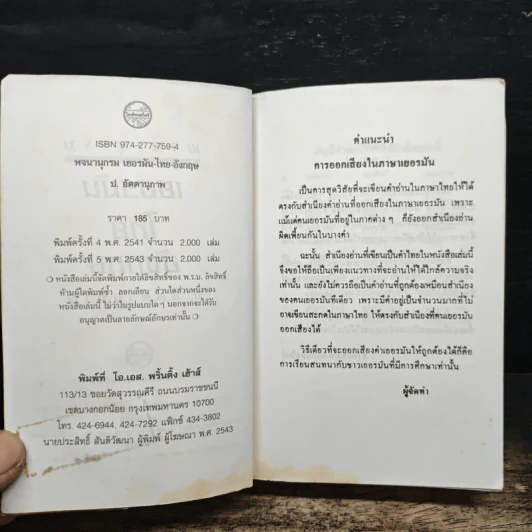 ISBN 974-277-759-4
พจนานุกรม เยอรมัน-ไทย-อังกฤษ
ป. อัตตานุภาพ
ราคา 185 บาท
พิมพ์ครั้งที่ 4 พ.ศ. 2541 จำนวน 2,000 เล่ม
พิมพ์ครั้งที่ 5 พ.ศ. 2543 จำนวน 2,000 เล่ม
หนังสือเล่มนี้จัดพิมพ์ภายใต้ลิขสิทธิ์ของ พ.ร.บ. ลิขสิทธิ์
ห้ามผู้ใดพิมพ์ซ้ำ ลอกเลียน ส่วนใดส่วนหนึ่งของ
หนังสือเล่มนี้ ไม่ว่าในรูปแบบใด ๆ นอกจากจะได้รับ
อนุญาตเป็นลายลักษณ์อักษรเท่านั้น
พิมพ์ที่ โอ.เอส. พริ้นติ้ง เฮ้าส์
113/13 ซอยวัดสุวรรณคีรี ถนนบรมราชชนนี
เขตบางกอกน้อย กรุงเทพมหานคร 10700
โทร. 424-6944, 424-7292 แฟ็กซ์ 434-3802
นายประสิทธิ์ สันติวัฒนา ผู้พิมพ์ ผู้โฆษณา พ.ศ. 2543
คำแนะนำ
การออกเสียงในภาษาเยอรมัน
เป็นการสุดวิสัยที่จะเขียนคำอ่านในภาษาไทยให้ได้
ตรงกับสำเนียงคำอ่านที่ออกเสียงในภาษาเยอรมัน เพราะ
แม้แต่คนเยอรมันที่อยู่ในภาคต่าง ๆ ก็ยังออกสำเนียงอ่าน
ผิดเพี้ยนกันในบางคำ
ฉะนั้น สำเนียงอ่านที่เขียนเป็นคำไทยในหนังสือเล่มนี้
จึงขอให้ถือเป็นเพียงแนวทางที่จะอ่านให้ได้ใกล้ความจริง
เท่านั้น และยังไม่ควรถือเป็นคำอ่านที่ถูกต้องเหมือนสำเนียง
ของคนเยอรมันทีเดียว เพราะมีคำอยู่เป็นจำนวนมากที่ไม่
อาจเขียนสะกดในภาษาไทย ให้ตรงกับสำเนียงที่คนเยอรมัน
ออกเสียงได้
วิธีเดียวที่จะออกเสียงคำเยอรมันให้ถูกต้องได้ก็คือ
การเรียนสนทนากับชาวเยอรมันที่มีการศึกษาเท่านั้น
ผู้จัดทำ